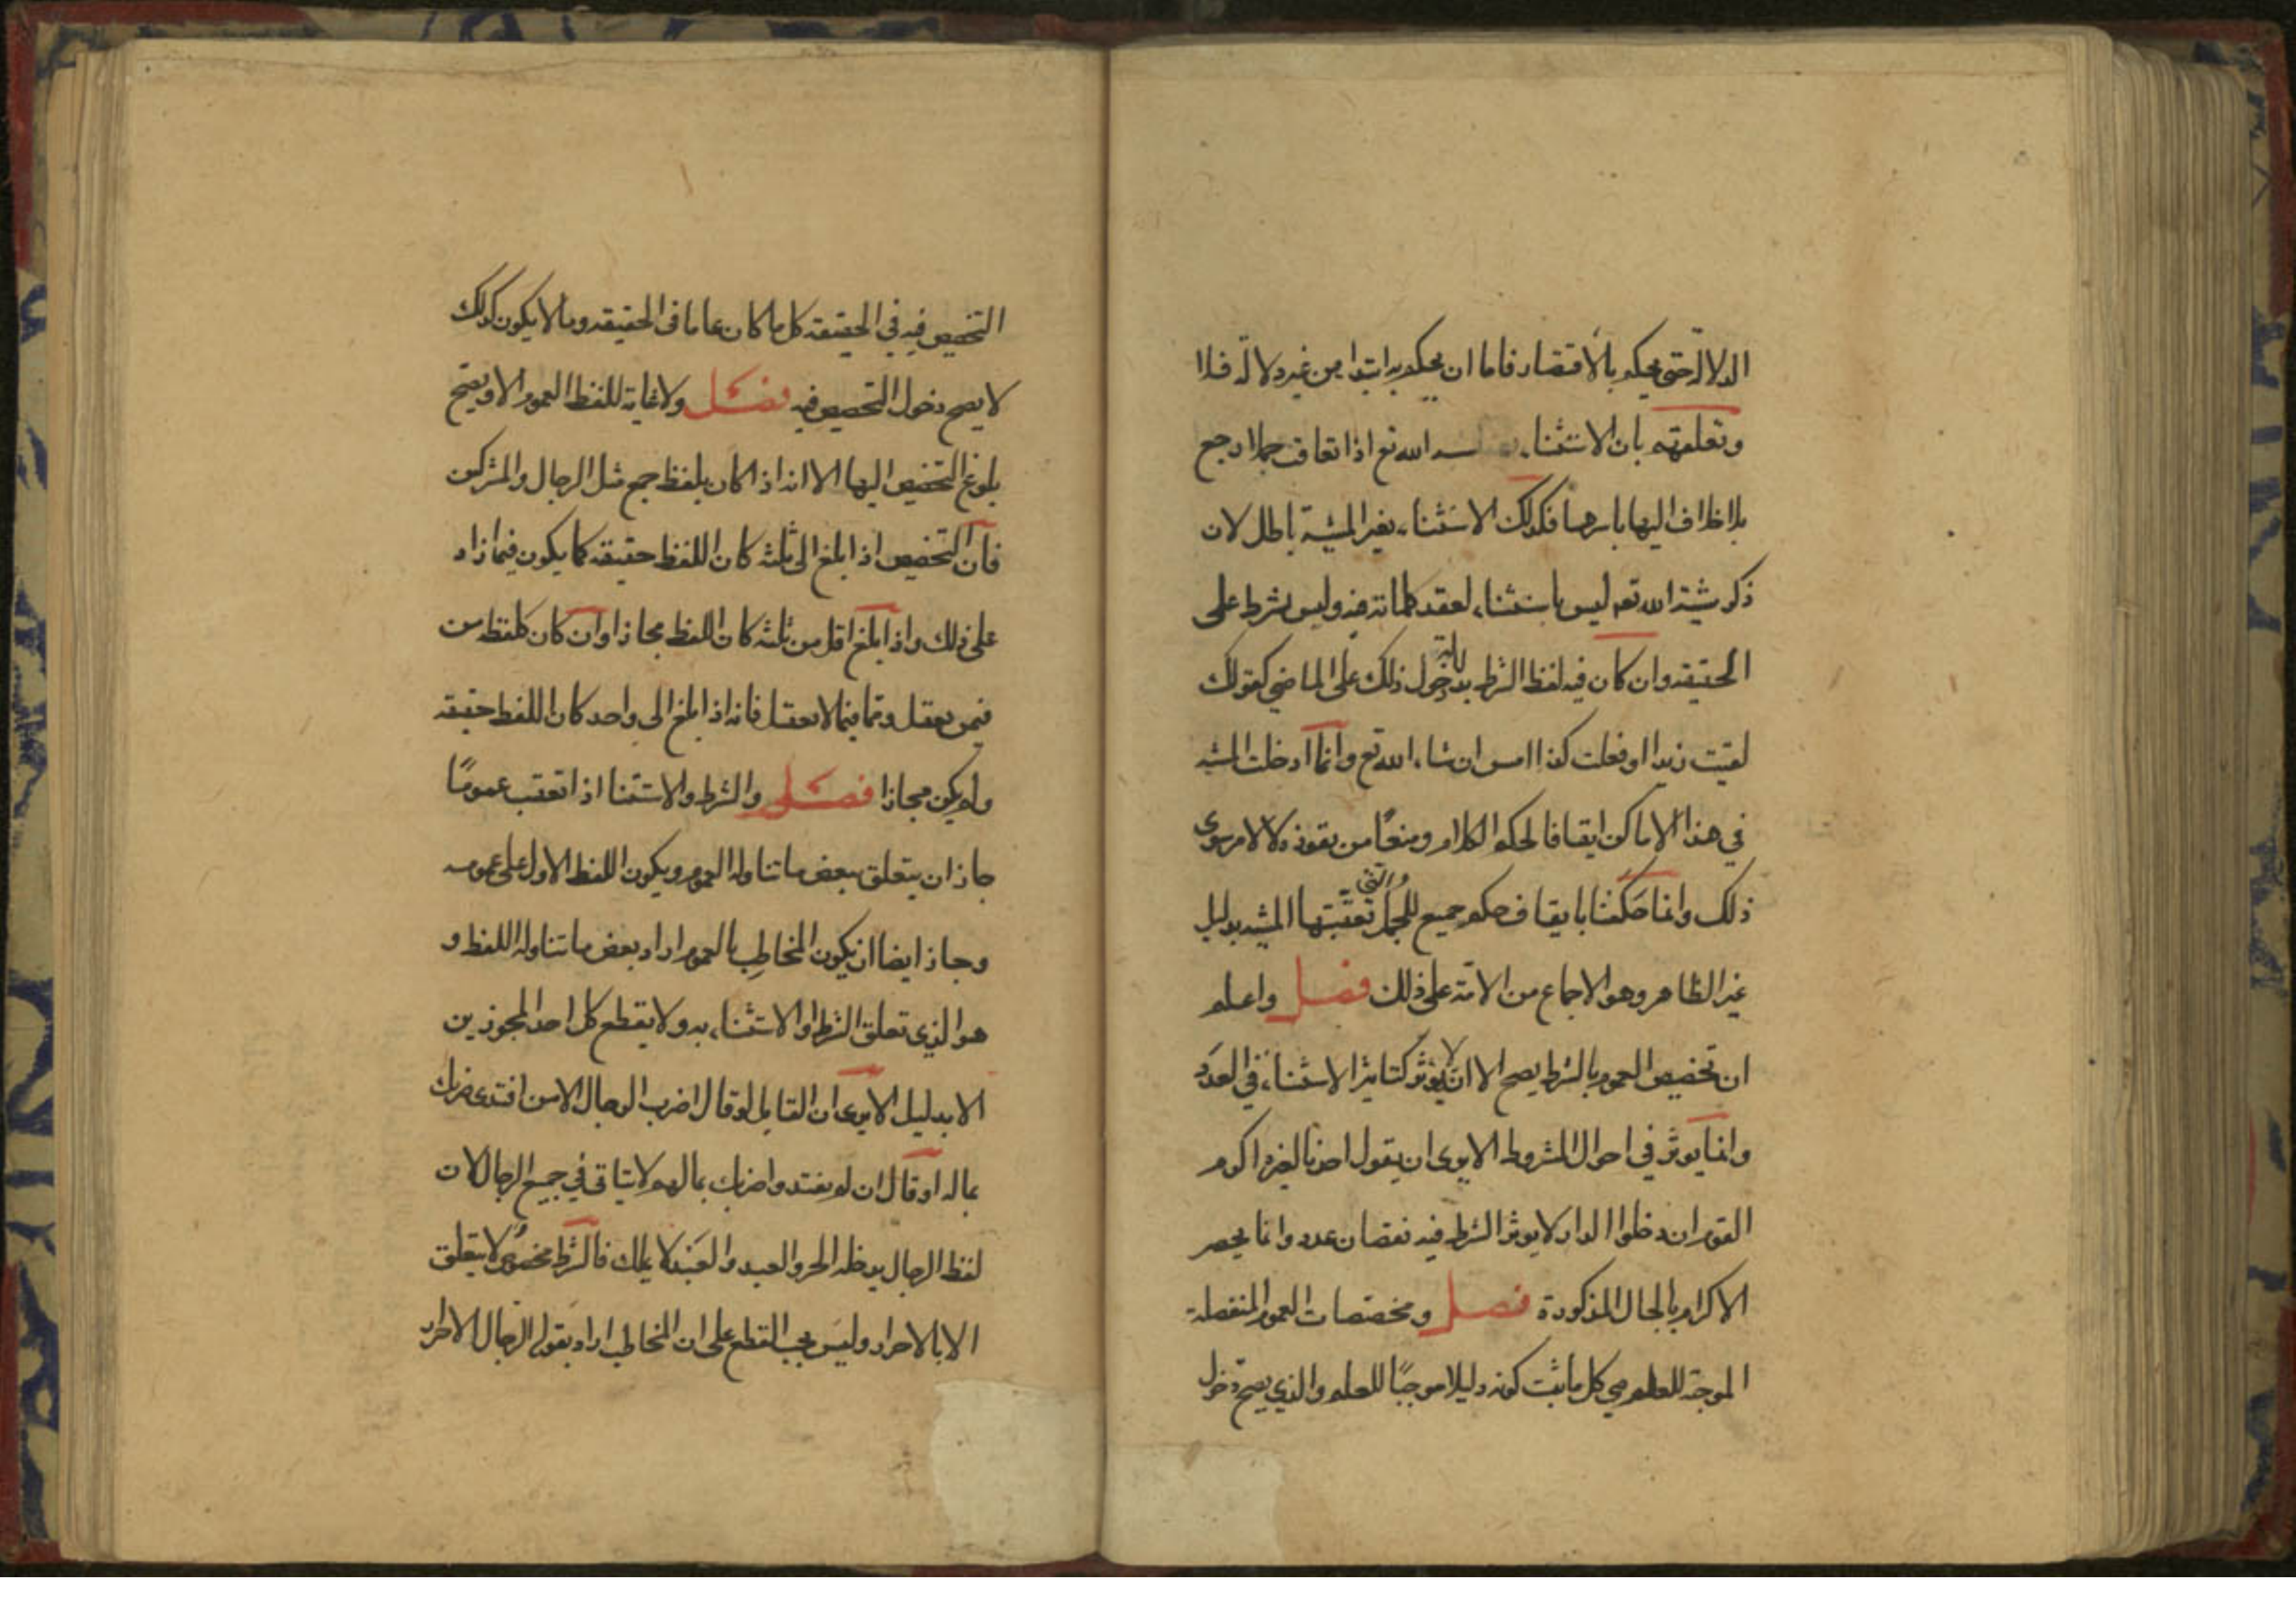 الدلالة حتى يحكم بالاقتصار فاما ان يحكم به ابتدا من غير دلالة فلا
وتعلقهم بان الاستثنا، الله تع اذا تعاقب جملا رجع
بلا خلاف اليها باسرها فكذلك الاستثنا، بغير المشية باطل لان
ذكر مشية الله تعہ ليس باستثنا، لعقد كلماته فيه وليس بشرط على
الحقيقه وان كان فيه لفظ الشرط بدلالة دخول ذلك على الماضي كقولك
لقيت زيدا او فعلت كذا امس ان شا، الله تع وانما ادخلت المشيه
في هذا الاماكن ايقافا لحكم الكلام ومنعًا من نفوذه لا لامر سوى
ذلك وانما حكمنا بايقاف حكم جميع الجمل والتى تعقبتها المشيه بدليل
غير الظاهر وهو الاجماع من الامّة على ذلك فصل واعلم
ان تخصيص العموم بالشرط يصح الا انه لا يؤثر كتاثير الاستثنا، في العدد
وانما يوثر في احوال المشروط الا يرى ان يقول احدنا لغيره اكرم
القوم ان دخلوا الدار لا يوثر الشرط فيه نقصان عدد وانما يحصر
الاكرام بالحال المذكورة فصل ومخصصات العموم المنفصلة
الموجبة للعلم هي كل ما ثبت كونه دليلا موجبًا للعلم والذي يصح دخول
التخصيص فيه في الحقيقه كل ما كان عاما في الحقيقه وما لا يكون كذلك
لا يصح دخول التخصيص فيه فصل ولا غاية للفظ العموم الا ويصح
بلوغ التخصيص اليها الا انه اذا كان بلفظ جمع مثل الرجال والمشركين
فان التخصيص اذا بلغ الى ثلثه كان اللفظ حقيقه كما يكون فيما زاد
على ذلك واذا بلغ اقل من ثلثه كان اللفظ مجازا وان كان كلفظ من
فيمن يعقل وما فيما لا يعقل فانه اذا بلغ الى واحد كان اللفظ حقيقه
ولم يكن مجازا فصل والشرط والاستثنا اذا تعقب عمومًا
جاز ان يتعلق ببعض ما تناوله العموم ويكون اللفظ الاول على عمومه
وجاز ايضا ان يكون المخاطِب بالعموم اراد بعض ما تناوله اللفظ و
هو الذي تعلق الشرط او الاستثنا، به ولا يقطع كل احد المجوزين
الا بدليل الا يرى ان القايل لو قال اضرب الرجال الا من افتدى ضربك
بماله او قال ان لم يفتدوا ضربك بمالهم لا يتاتى في جميع الرجال لان
لفظ الرجال يدخله الحر والعبد والعَبْد لا يملك فالشرط مخصوص لا يتعلق
الا بالاحرار وليس يجب القطع على ان المخاطب اراد بقوله الرجال الاحرار